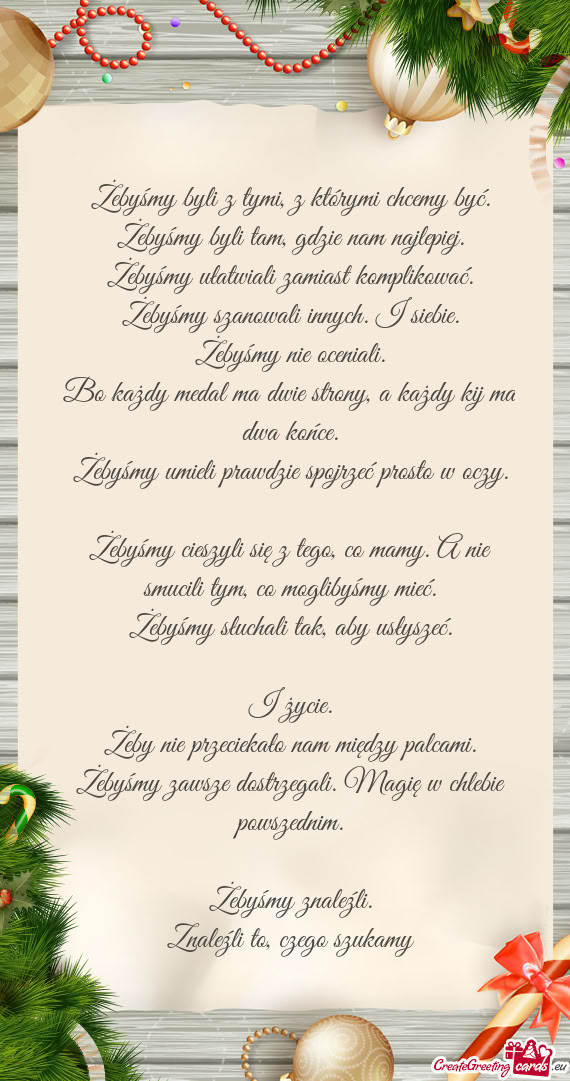 Żebyśmy byli z tymi, z którymi chcemy być.
Żebyśmy byli tam, gdzie nam najlepiej.
Żebyśmy ułatwiali zamiast komplikować.
Żebyśmy szanowali innych. I siebie.
Żebyśmy nie oceniali.
Bo każdy medal ma dwie strony, a każdy kij ma
dwa końce.
Żebyśmy umieli prawdzie spojrzeć prosto w oczy.
Żebyśmy cieszyli się z tego, co mamy. A nie
smucili tym, co moglibyśmy mieć.
Żebyśmy słuchali tak, aby usłyszeć.
I życie.
Żeby nie przeciekało nam między palcami.
Żebyśmy zawsze dostrzegali. Magię w chlebie
powszednim.
Żebyśmy znaleźli.
Znaleźli to, czego szukamy
CreateGreetingcards.eu